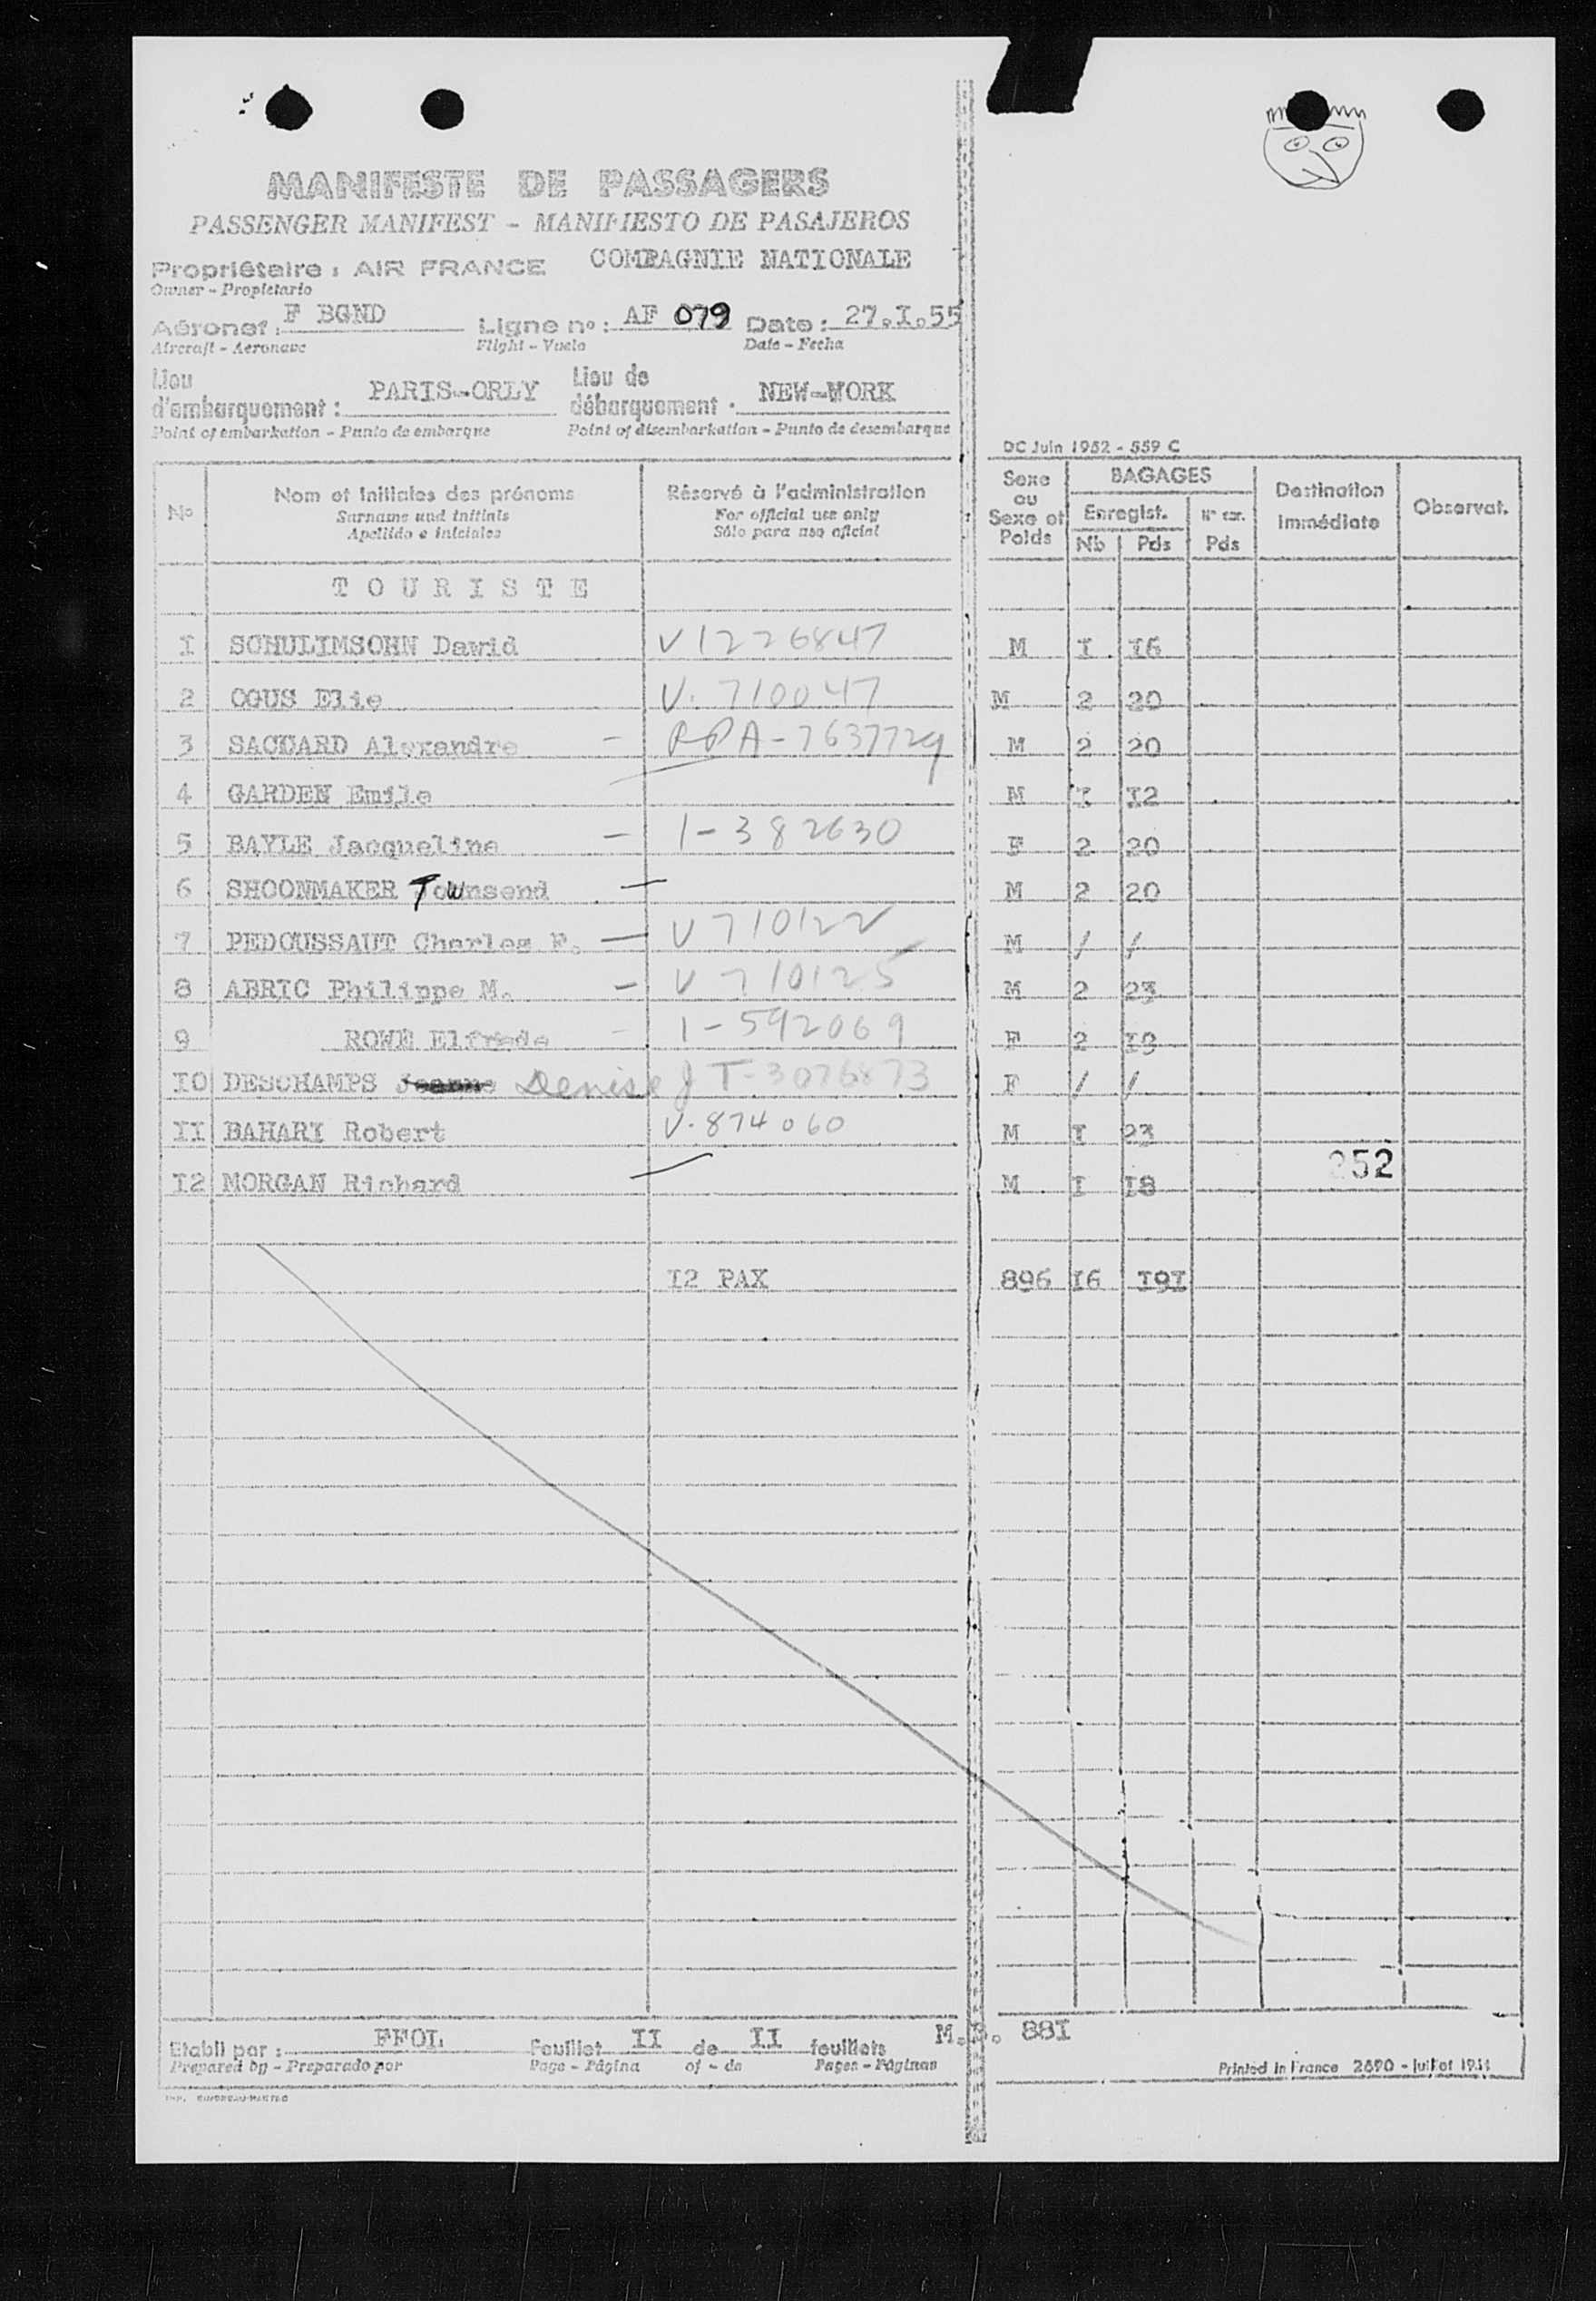 MANIFESTE DE PASSAGERS
PASSENGER MANIFEST - MANIFIESTO DE PASAJEROS
Propriétaire : AIR FRANCE COMPAGNIE NATIONALE
Owner - Propietario
Aéronef : F BGND Ligne nº : AF 079 Date : 27.I.55
Aircraft - Aeronave Flight - Vuelo Date - Fecha
Lieu d'embarquement : PARIS-ORLY Lieu de débarquement : NEW-WORK
Point of embarkation - Punto de embarque Point of disembarkation - Punto de desembarque
DC Juin 1952 - 559 C
Nº Nom et initiales des prénoms Réservé à l'administration Sexe ou Sexe et Poids BAGAGES Destination immédiate Observat.
Surname and initials For official use only Enregist. Nb Pds Pds
Apellido e iniciales Sólo para uso oficial
T O U R I S T E
I SCHULIMSOHN Dawid V1226847 M I I6
2 OGUS Elie V. 710047 M 2 20
3 SACUARD Alexandre - PPA-7637729 M 2 20
4 GARDEN Emile M I I2
5 BAYLE Jacqueline - 1-382630 F 2 20
6 SHOONMAKER Townsend - M 2 20
7 PEDOUSSAUT Charles F. - V 710122 M / /
8 ABRIC Philippe M. - V 710125 M 2 23
9 ROWE Elfrede - 1-592069 F 2 I9
IO DESCHAMPS Jeanne Denise J T-3076873 F / /
II BAHARI Robert V.874060 M I 23
I2 MORGAN Richard M I I8
252
I2 PAX 896 I6 I9I
Etabli par : FFOL Feuillet II de II feuillets M.D. 88I
Prepared by - Preparado por Page - Página of - de Pages - Páginas
Printed in France 2690 - juillet 1954